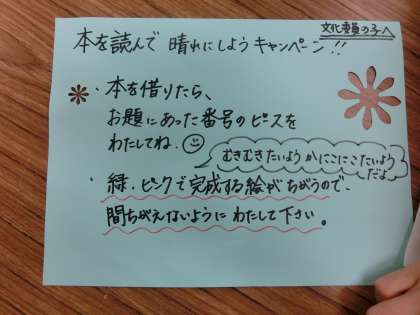 文化委員の子へ
本を読んで 晴れにしようキャンペーン!!
・本を借りたら、
お題にあった番号のピースを
わたしてね。
むきむきたいよう かにこにこたいよう
だよ
・緑、ピンクで完成する絵がちがうので、
間ちがえないようにわたして下さい。